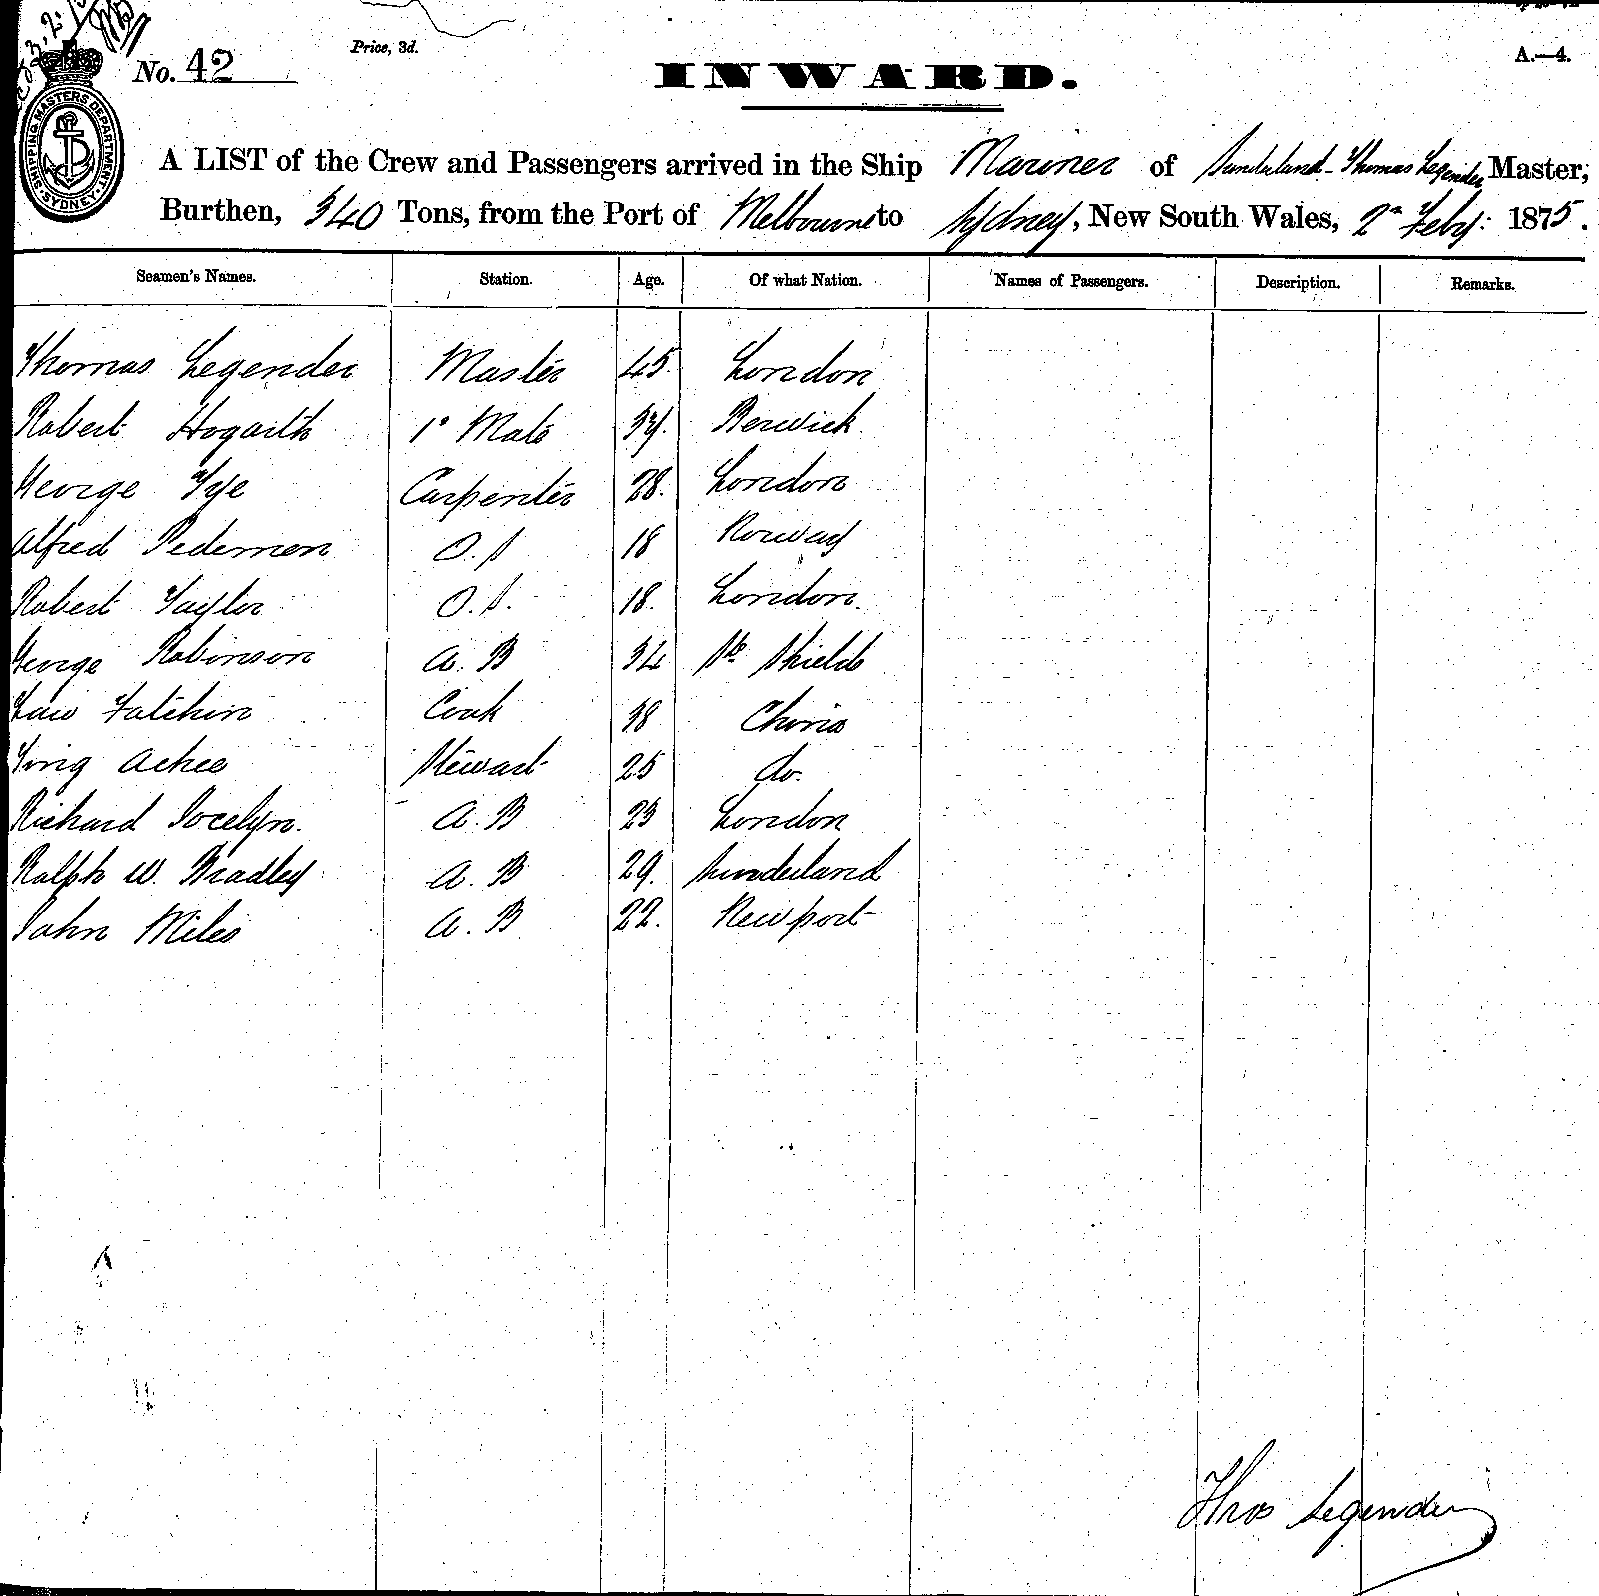 No. 42
Price, 3d.
A.—4.
SHIPPING MASTERS DEPARTMENT. SYDNEY
INWARD.
A LIST of the Crew and Passengers arrived in the Ship Mariner of Sunderland - Thomas Legender Master;
Burthen, 340 Tons, from the Port of Melbourne to Sydney, New South Wales, 2nd Feby: 1875.
Seamen's Names. Station. Age. Of what Nation. Names of Passengers. Description. Remarks.
Thomas Legender Master 45 London
Robert Hogarth 1st Mate Berwick
George Tye Carpenter 28. London
Alfred Pedersen O. S 18 Norway
Robert Taylor O. S. 18. London.
George Robinson A. B 34 Sth Shields
Cook 38 China
Stewart 25 do.
Richard Jocelyn. A. B 23 London
Ralph W. Bradley A. B 29. Sunderland
John Miles A. B 22. Newport
Thos Legender